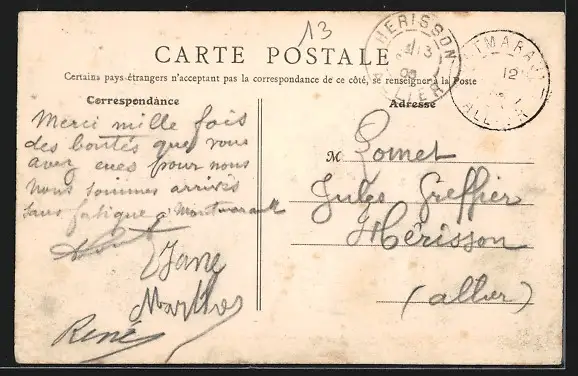 13
CARTE POSTALE
Certains pays étrangers n'acceptant pas la correspondance de ce côté, se renseigner à la Poste
Correspondance
Adresse
HERISSON
ALLIER
12
ALLIER
Merci mille fois
des bontés que vous
avez eues pour nous
nous sommes arrivés
sans fatigue a Montmarault
Jane
Marthe
René
M Lomet
Jules Greffier
Hérisson
(allier)